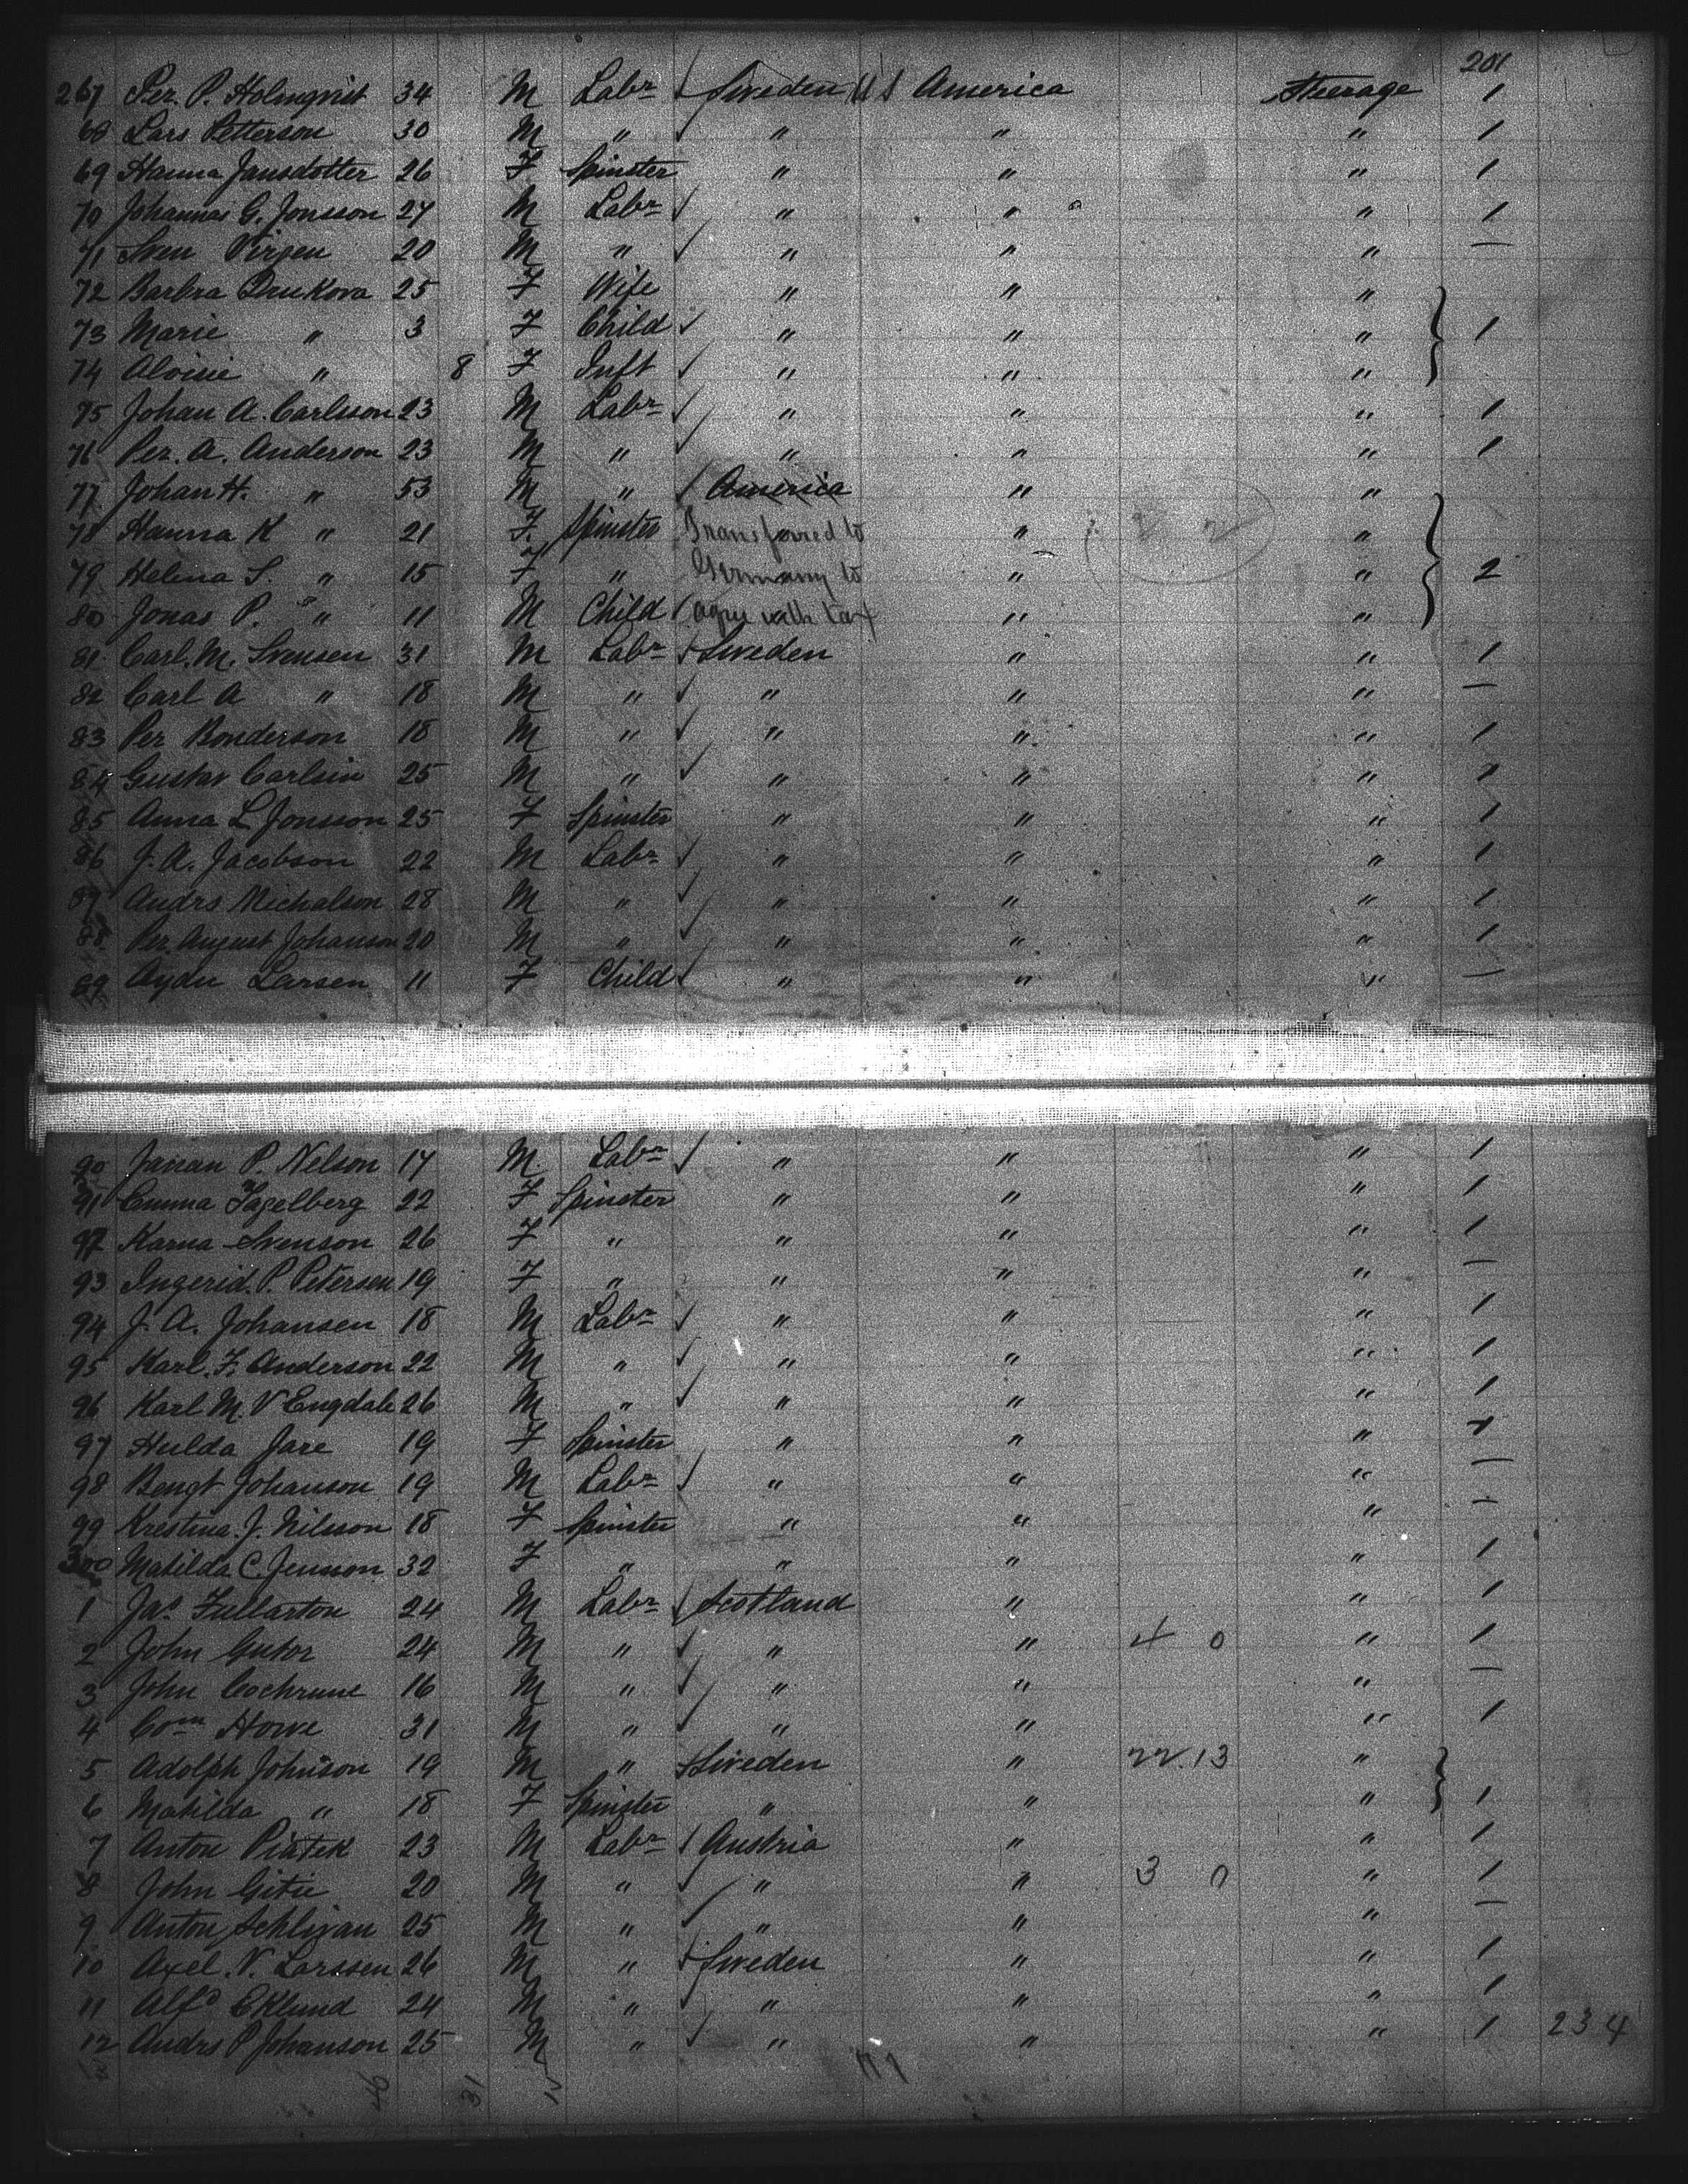 201
267 Per. P. Holmqvist 34 M Labr Sweden U S America Steerage 1
68 Lars Petterson 30 M " " " " 1
69 Hanna Jansdotter 26 F Spinster " " " 1
70 Johannas G. Jonsson 27 M Labr " " " 1
71 Sven Virgen 20 M " " " " —
72 Barbra Drukova 25 F Wife " " "
73 Marie " 3 F Child " " " 1
74 Aloisie " 8 F Inft " " "
75 Johan A. Carlsson 23 M Labr " " " 1
76 Per. A. Anderson 23 M " " " " 1
77 Johan H. " 53 M " America " "
78 Hanna K " 21 F. Spinster Transferred to " "
79 Helena S. " 15 F " Germany to " " 2
80 Jonas P. " 11 M Child agree with tax " "
81 Carl. M. Svensen 31 M Labr Sweden " " 1
82 Carl A " 18 M " " " " —
83 Per Bonderson 18 M " " " " 1
84 Gustav Carlsin 25 M " " " " 1
85 Anna L Jonsson 25 F Spinster " " " 1
86 J. A. Jacobson 22 M Labr " " " 1
87 Andrs Michalson 28 M " " " " 1
88 Per August Johanson 20 M " " " " 1
89 Larsen 11 F Child " " " —
90 P. Nelson 17 M. Labr " " " 1
91 Emma Fagelberg 22 F Spinster " " " 1
92 Karna Svenson 26 F " " " " 1
93 Ingerid. P. Petersen 19 F " " " " —
94 J. A. Johansen 18 M Labr " " " 1
95 Karl. F. Anderson 22 M " " " " 1
96 Karl M. V Engdale 26 M " " " " 1
97 Hulda Jare 19 F Spinster " " " 1
98 Bengt Johanson 19 M Labr " " " —
99 Krestina. J. Nilsson 18 F Spinster " " " —
300 Matilda C. Jensson 32 F " " " " 1
1 Jas Fullarton 24 M Labr Scotland " " 1
2 John Gutor 24 M " " " 4 0 " 1
3 John Cochrune 16 M " " " " —
4 Com Howe 31 M " " " " 1
5 Adolph Johnson 19 M " Sweden " 22.13 "
6 Matilda " 18 F Spinster " " " 1
7 Anton Piatek 23 M Labr Austria " " 1
8 John Gitie 20 M " " " 3 0 " 1
9 Anton Schlivan 25 M " " " " —
10 Axel. N. Larssen 26 M " Sweden " " 1
11 Alfd Eklund 24 M " " " " 1
12 Andrs P Johanson 25 M " " " " 1 234